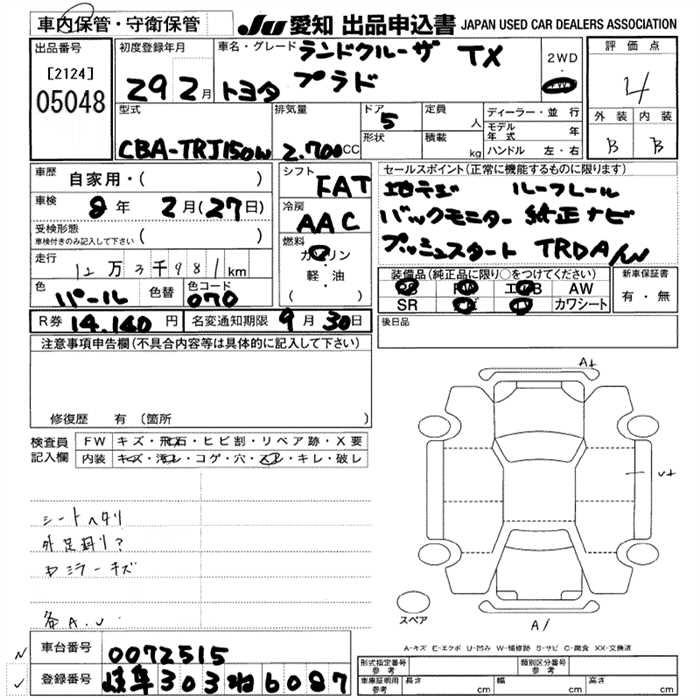 車内保管・守衛保管
JU 愛知 出品申込書 JAPAN USED CAR DEALERS ASSOCIATION
出品番号
[2124]
05048
初度登録年月
29 2月
車名・グレード ランドクルーザ TX
トヨタ プラド
2WD
・
4WD
評価点
4
外装 内装
B B
型式
CBA-TRJ150W
排気量
2.700CC
ドア 5
形状
定員 人
積載 kg
ディーラー・並行
モデル年式 年
ハンドル 左・右
車歴 自家用・( )
車検 8年 2月(27日)
受検形態
車検付きのみ記入して下さい ( )
走行 12万3千981km
色 パール 色替 色コード 070
シフト FAT
冷房 AAC
燃料 ガソリン
軽・油
( )
セールスポイント(正常に機能するものに限ります)
地デジ ルーフレール
バックモニター 純正ナビ
プッシュスタート TRDA/W
装備品(純正品に限り○をつけてください)
PS PW エアB AW
SR ナビ TV カワシート
新車保証書
有・無
R券 14.140円 名変通知期限 9月30日
後日品
注意事項申告欄(不具合内容等は具体的に記入して下さい)
修復歴 有(箇所 )
検査員記入欄
FW キズ・飛石・ヒビ割・リペア跡・X要
内装 キズ・汚レ・コゲ・穴・スレ・キレ・破レ
シートヘタリ
外足廻り?
ミラーキズ
各A.U
A+
A/
スペア
A-キズ E-エクボ U-凹み W-補修跡 S-サビ C-腐食 XX-交換済
車台番号 0072515
登録番号 岐阜 303 ね 6087
形式指定番号 参考
類別区分番号 参考
車庫証明用 参考 長さ cm 幅 cm 高さ cm